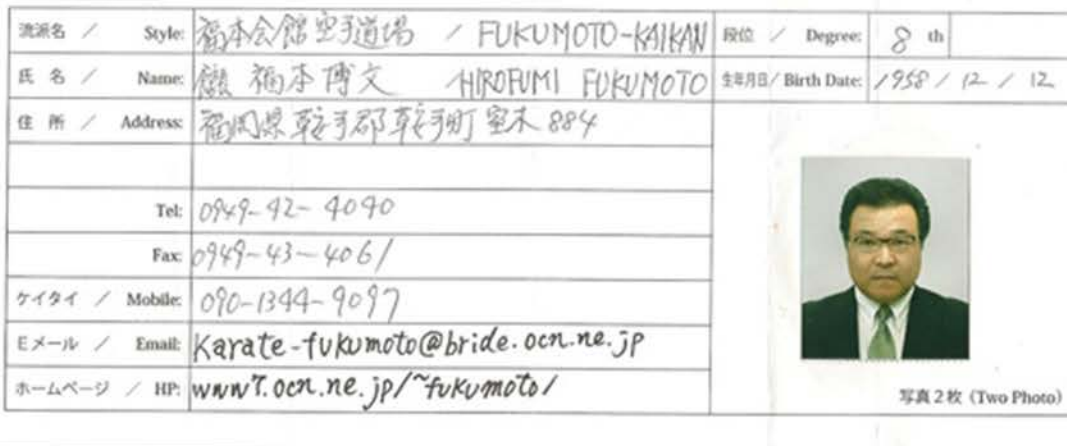 流派名 / Style: 福本会館空手道場 / FUKUMOTO-KAIKAN 段位 / Degree: 8 th
氏 名 / Name: 福本博文 HIROFUMI FUKUMOTO 生年月日/Birth Date: 1958 / 12 / 12
住 所 / Address: 福岡県鞍手郡鞍手町室木884
Tel: 0949-42-4040
Fax: 0949-43-4061
ケイタイ / Mobile: 090-1344-9097
Eメール / Email: Karate-fukumoto@bride.ocn.ne.jp
ホームページ / HP: www7.ocn.ne.jp/~fukumoto/
写真2枚 (Two Photo)